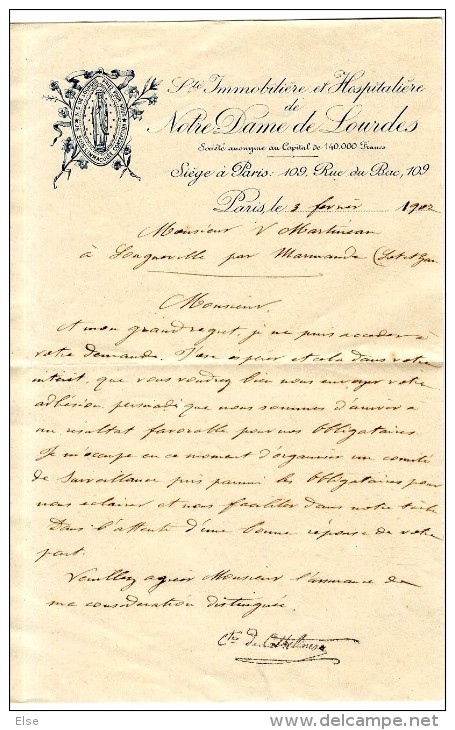 Sté Immobilière et Hospitalière
de
Notre Dame de Lourdes
Société anonyme au Capital de 140.000 Francs
Siège à Paris: 109, Rue du Bac, 109
Paris, le 3 fevrier 1902
Monsieur V Martineau
à Longueville par Marmande (Lot et Gar
Monsieur,
A mon grand regret, je ne puis acceder à
votre demande. J'ose espérer et cela dans votre
intérêt, que vous voudrez bien nous envoyer votre
adhésion, persuadé que nous sommes d'arriver a
un resultat favorable pour nos obligataires
Je m'occupe en ce moment d'organiser un comité
de Surveillance pris parmi les obligataires pour
nous éclairer et nous faciliter dans notre tâche
Dans l'attente d'une bonne réponse de votre
part.
Veuillez agréer Monsieur l'assurance de
ma consideration distinguée.
Cte de
Else
delcampe.net